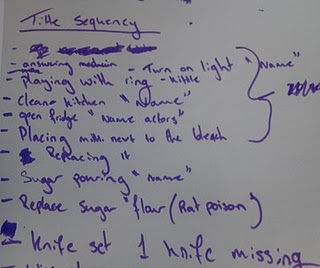 Title Sequency
- answering machein - Turn on light "Name"
- playing with ring - Kittle
- Clean kitchen "Name"
- open fridge "Name actors"
- Placing milk next to the bleach
- Replacing it
- Sugar pouring "name"
- Replace Sugar flour (Rat poison)
- Knife set 1 knife missing